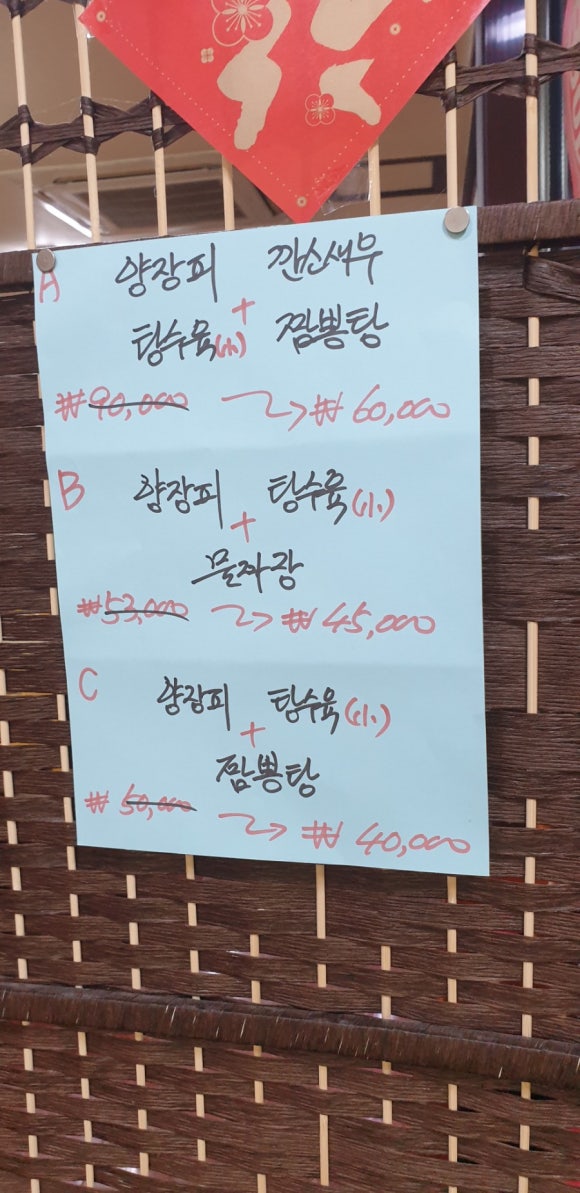 A 양장피 깐쇼새우
+
탕수육(小) 짬뽕탕
₩90,000 → ₩60,000
B 양장피 탕수육(小)
+
물짜장
₩53,000 → ₩45,000
C 양장피 탕수육(小)
+
짬뽕탕
₩50,000 → ₩40,000